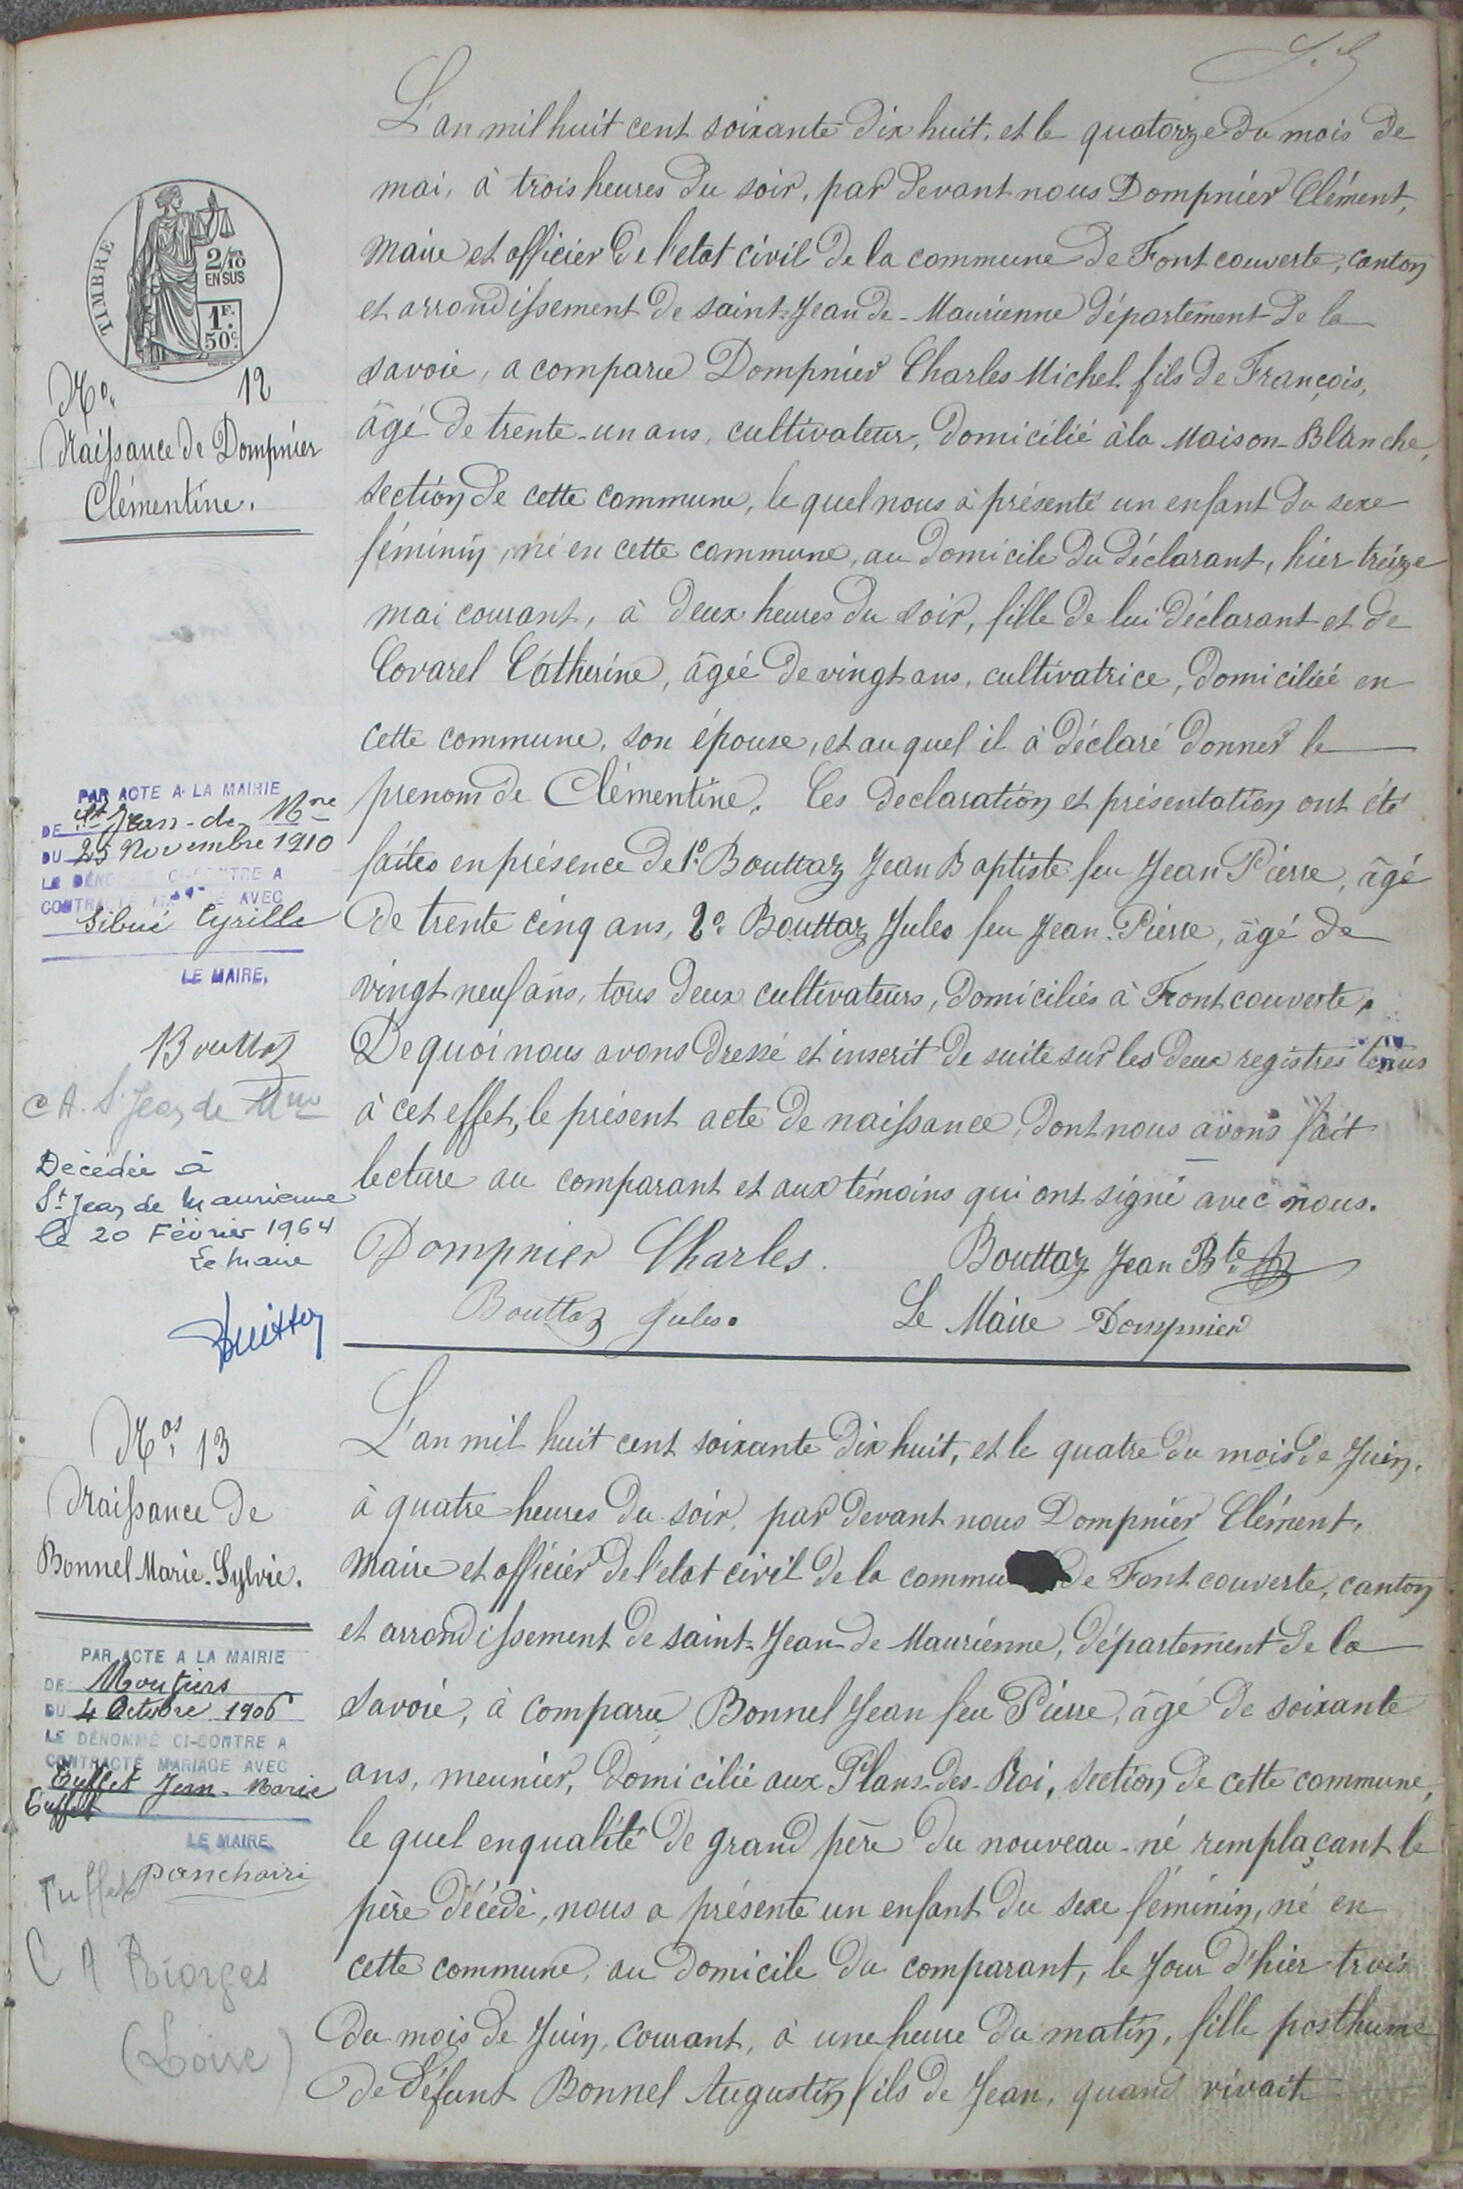 TIMBRE
2/10
EN SUS
1F.
50c.
No. 12
Naissance de Dompnier
Clémentine.
L'an mil huit cent soixante dix huit, et le quatorze du mois de
mai, à trois heures du soir, par devant nous Dompnier Clément,
maire et officier de l'etat civil de la commune de Fontcouverte, canton
et arrondissement de saint-Jean de-Maurienne département de la
savoie, a comparu Dompnier Charles Michel fils de François,
âgé de trente-un ans, cultivateur, domicilié à la Maison-Blanche,
section de cette commune, le quel nous à présenté un enfant du sexe
féminin, né en cette commune, au domicile du déclarant, hier treize
mai courant, à deux heures du soir, fille de lui déclarant et de
Covarel Catherine, âgée de vingt ans, cultivatrice, domiciliée en
cette commune, son épouse, et auquel il à déclaré donner le
prenom de Clémentine. Ces declaration et présentation ont été
faites en présence de 1o. Bouttaz Jean Baptiste feu Jean Pierre, âgé
de trente cinq ans, 2o. Bouttaz Jules feu Jean-Pierre, âgé de
vingt neuf ans, tous deux cultivateurs, domiciliés à Frontcouverte.
De quoi nous avons dressé et inscrit de suite sur les deux registres tenus
à cet effet, le présent acte de naissance, dont nous avons fait
lecture au comparant et aux témoins qui ont signé avec nous.
Dompnier Charles. Bouttaz Jean Bte
Bouttaz Jules. Le Maire Dompnier
PAR ACTE A LA MAIRIE
DE St Jean-de Mne
DU 25 Novembre 1910
LE DÉNOMMÉ CI-CONTRE A
CONTRACTÉ MARIAGE AVEC
Sibué Cyrille
LE MAIRE,
Bouttaz
C A. St Jean de Mne
Décédée à
St Jean de Maurienne
le 20 Février 1964
Le Maire
Nos. 13
Naissance de
Bonnel Marie-Sylvie.
L'an mil huit cent soixante dix huit, et le quatre du mois de Juin,
à quatre heures du soir, par devant nous Dompnier Clément,
maire et officier de l'etat civil de la commu de Fontcouverte, canton
et arrondissement de saint-Jean-de Maurienne, département de la
savoie, à comparu Bonnel Jean feu Pierre, âgé de soixante
ans, meunier, domicilié aux Plans-des-Roi, section de cette commune,
le quel en qualité de grand père du nouveau-né remplaçant le
père décédé, nous a présenté un enfant du sexe féminin, né en
cette commune, au domicile du comparant, le jour d'hier trois
du mois de Juin, courant, à une heure du matin, fille posthume
de défunt Bonnel Augustin fils de Jean, quand vivait
PAR ACTE A LA MAIRIE
DE Moutiers
DU 4 Octobre 1906
LE DÉNOMMÉ CI-CONTRE A
CONTRACTÉ MARIAGE AVEC
Tuffet Jean-Marie
Tuffet
LE MAIRE
Tuffet
C A Riorges
(Loire)